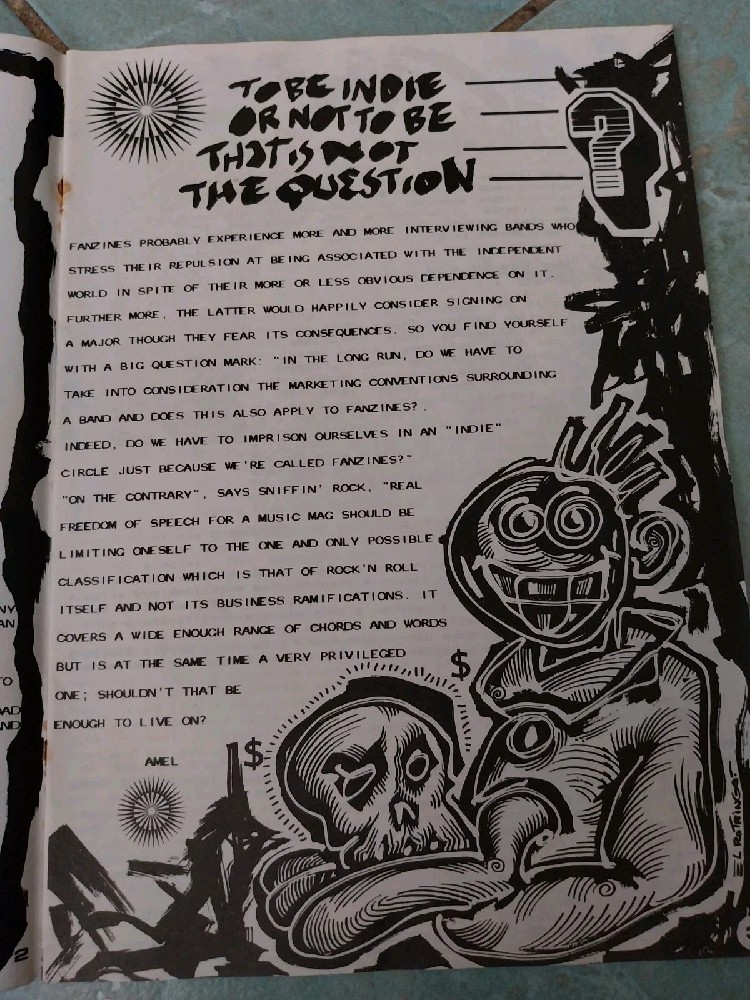 TO BE INDIE
OR NOT TO BE
THAT IS NOT
THE QUESTION
?
FANZINES PROBABLY EXPERIENCE MORE AND MORE INTERVIEWING BANDS WHO
STRESS THEIR REPULSION AT BEING ASSOCIATED WITH THE INDEPENDENT
WORLD IN SPITE OF THEIR MORE OR LESS OBVIOUS DEPENDENCE ON IT.
FURTHER MORE, THE LATTER WOULD HAPPILY CONSIDER SIGNING ON
A MAJOR THOUGH THEY FEAR ITS CONSEQUENCES. SO YOU FIND YOURSELF
WITH A BIG QUESTION MARK: "IN THE LONG RUN, DO WE HAVE TO
TAKE INTO CONSIDERATION THE MARKETING CONVENTIONS SURROUNDING
A BAND AND DOES THIS ALSO APPLY TO FANZINES?.
INDEED, DO WE HAVE TO IMPRISON OURSELVES IN AN "INDIE"
CIRCLE JUST BECAUSE WE'RE CALLED FANZINES?"
"ON THE CONTRARY", SAYS SNIFFIN' ROCK, "REAL
FREEDOM OF SPEECH FOR A MUSIC MAG SHOULD BE
LIMITING ONESELF TO THE ONE AND ONLY POSSIBLE
CLASSIFICATION WHICH IS THAT OF ROCK'N ROLL
ITSELF AND NOT ITS BUSINESS RAMIFICATIONS. IT
COVERS A WIDE ENOUGH RANGE OF CHORDS AND WORDS
BUT IS AT THE SAME TIME A VERY PRIVILEGED
ONE; SHOULDN'T THAT BE
ENOUGH TO LIVE ON?
AMEL
$
$
EL ROTRINGO
NY
AN
TO
AD
AND
2